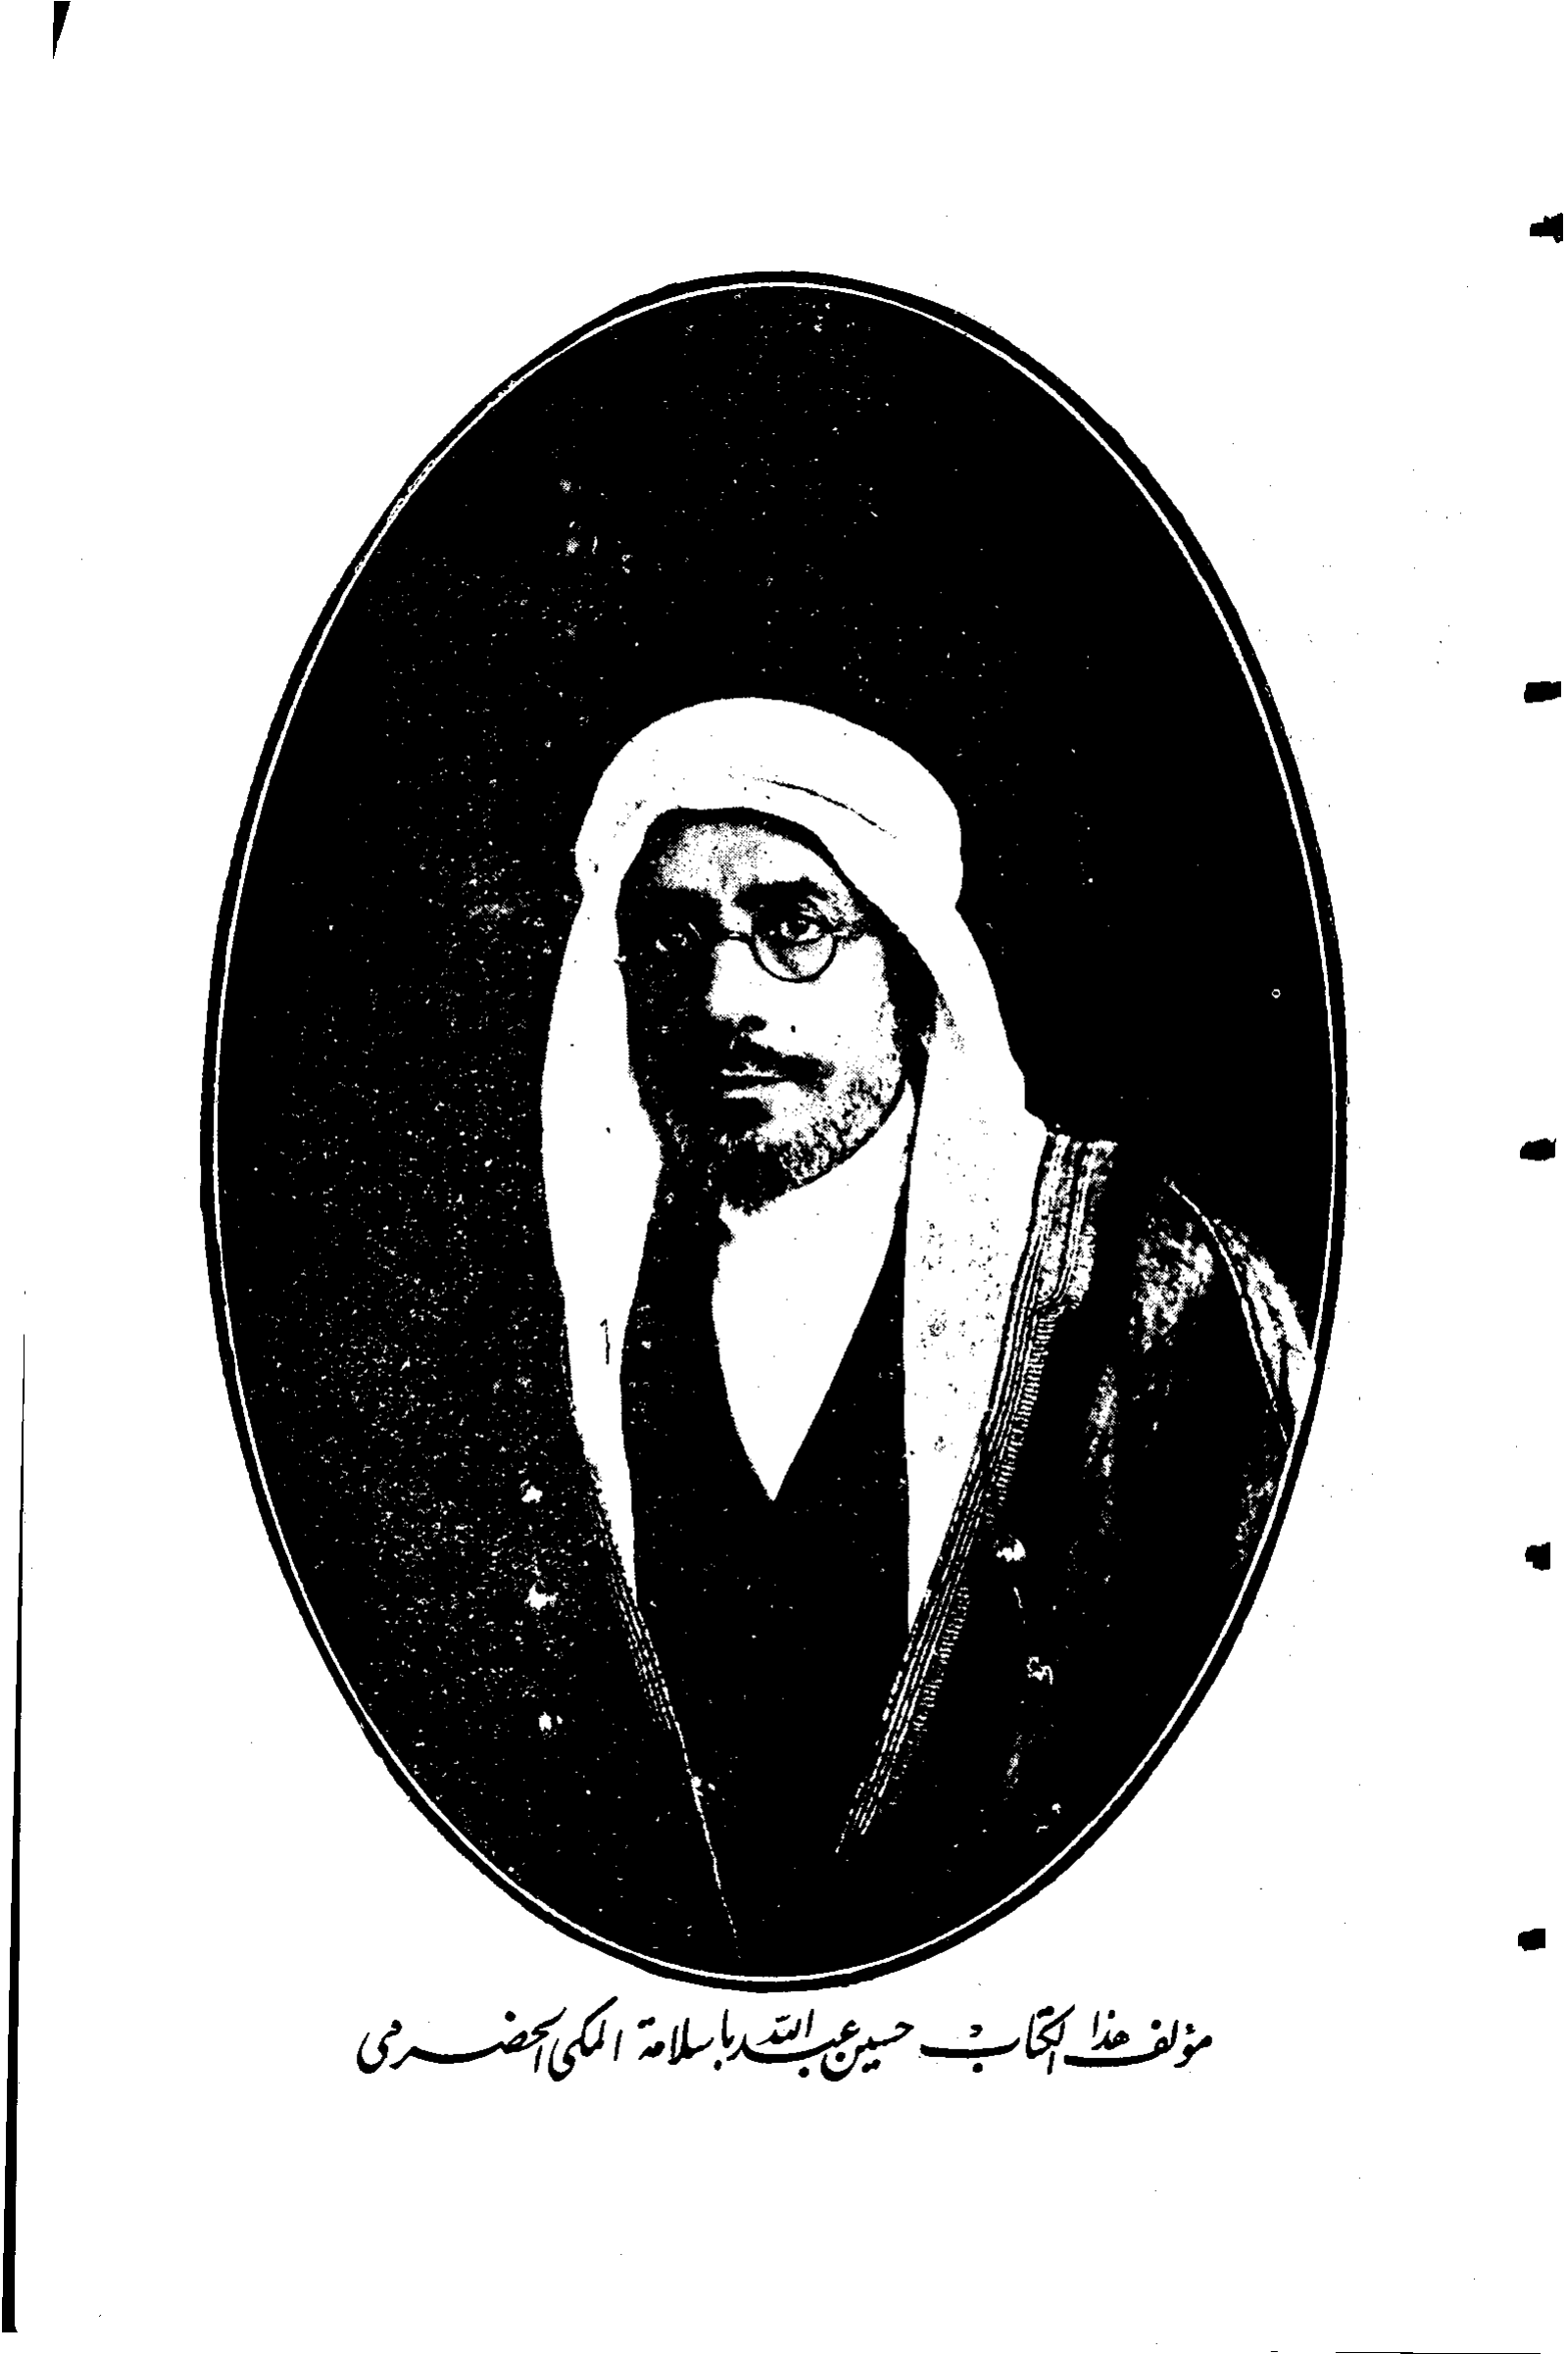 مؤلف هذا الكتاب حسين عبد الله باسلامة المكي الحضرمي